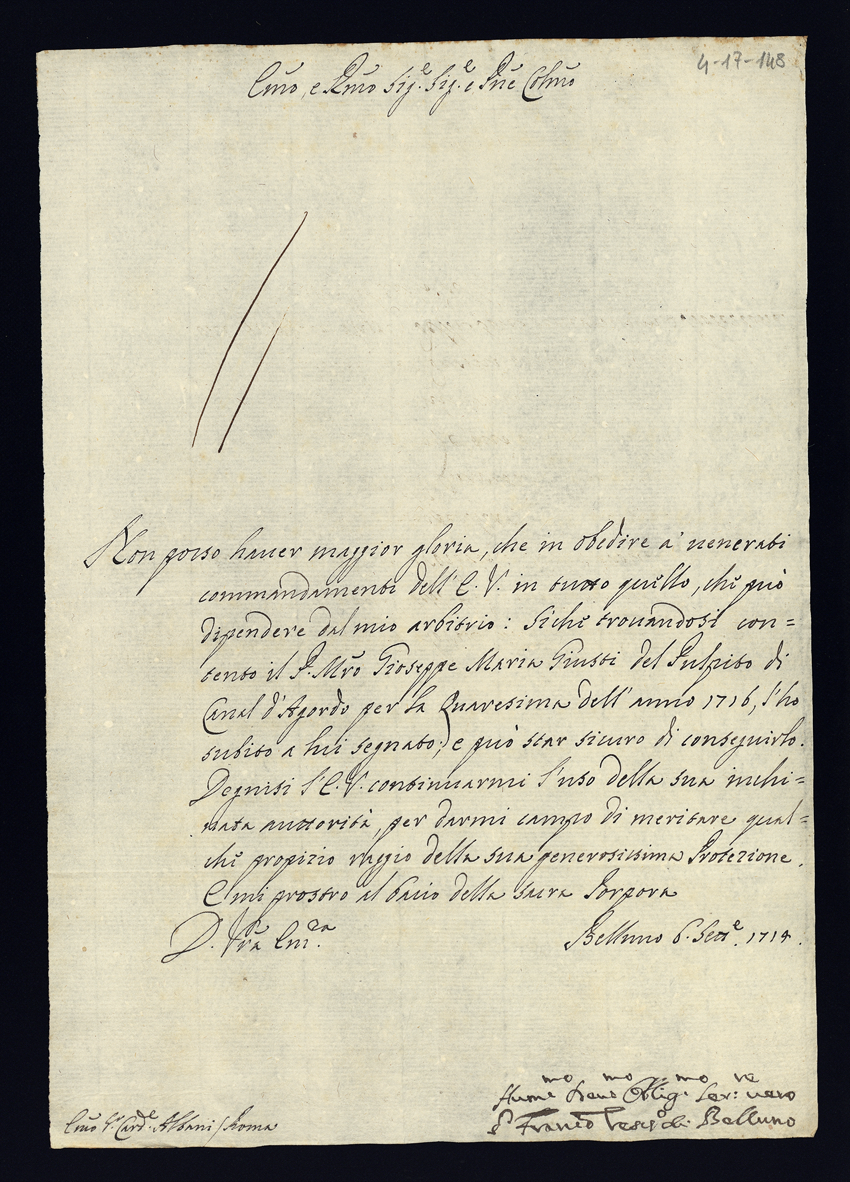 4-17-148
Emo, e Rmo Sig.e Sig.e e Pñe Colmo
Non posso hauer maggior gloria, che in obedire a' uenerati
commandamenti dell' E. V. in tutto quello, che può
dipendere dal mio arbitrio: Siche trouandosi con=
tento il P. Mro Gioseppe Maria Giusti del Pulpito di
Canal d'Agordo per la Quaresima dell' anno 1716, l'ho
subito a lui segnato; e può star sicuro di conseguirlo.
Degnisi l' E. V. continuarmi l'uso della sua inchi=
nata auttorità, per darmi campo di meritare qual=
che propizio raggio della sua generosissima Protezione.
E mi prostro al bacio della sacra Porpora
D. Vra Em.za
Belluno 6. Sett.e 1714.
Hum.mo Deuo.mo Oblig.mo Ser.re uero
Franco Vesc.o di Belluno
Emo S.r Card.e Albani / Roma